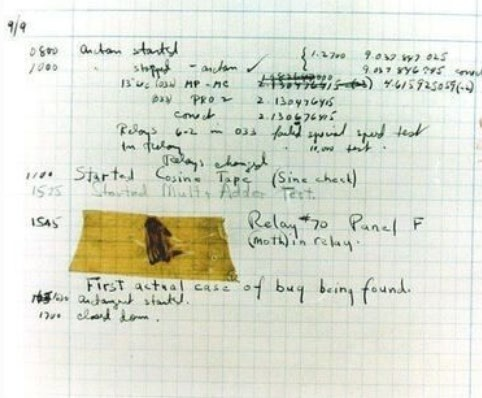 9/9
0800 Antan started
1000 " stopped - antan ✓ { 1.2700 9.037 847 025
9.037 846 995 correct
13"uc (032) MP - MC 2.130476415 (-3) 4.615925059(-2)
(033) PRO 2 2.130476415
correct 2.130676415
Relays 6-2 in 033 failed special speed test
in Relay " 10,000 test .
Relays changed
1100 Started Cosine Tape (Sine check)
1525 Started Mult + Adder Test.
1545 Relay #70 Panel F
(moth) in relay.
First actual case of bug being found.
1630 antangent started.
1700 closed down.